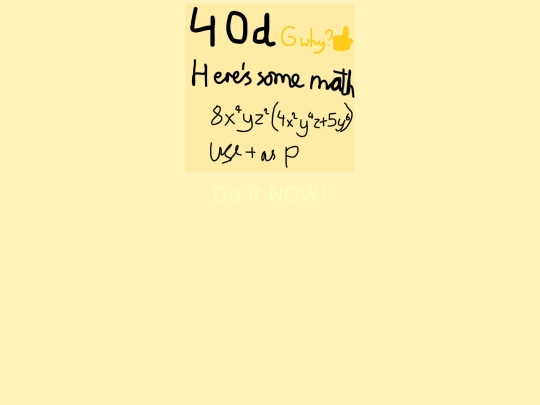 40d G why?
Here's some math
8x⁴yz²(4x²y⁴z+5y⁶)
use + as p
Do it NOW!